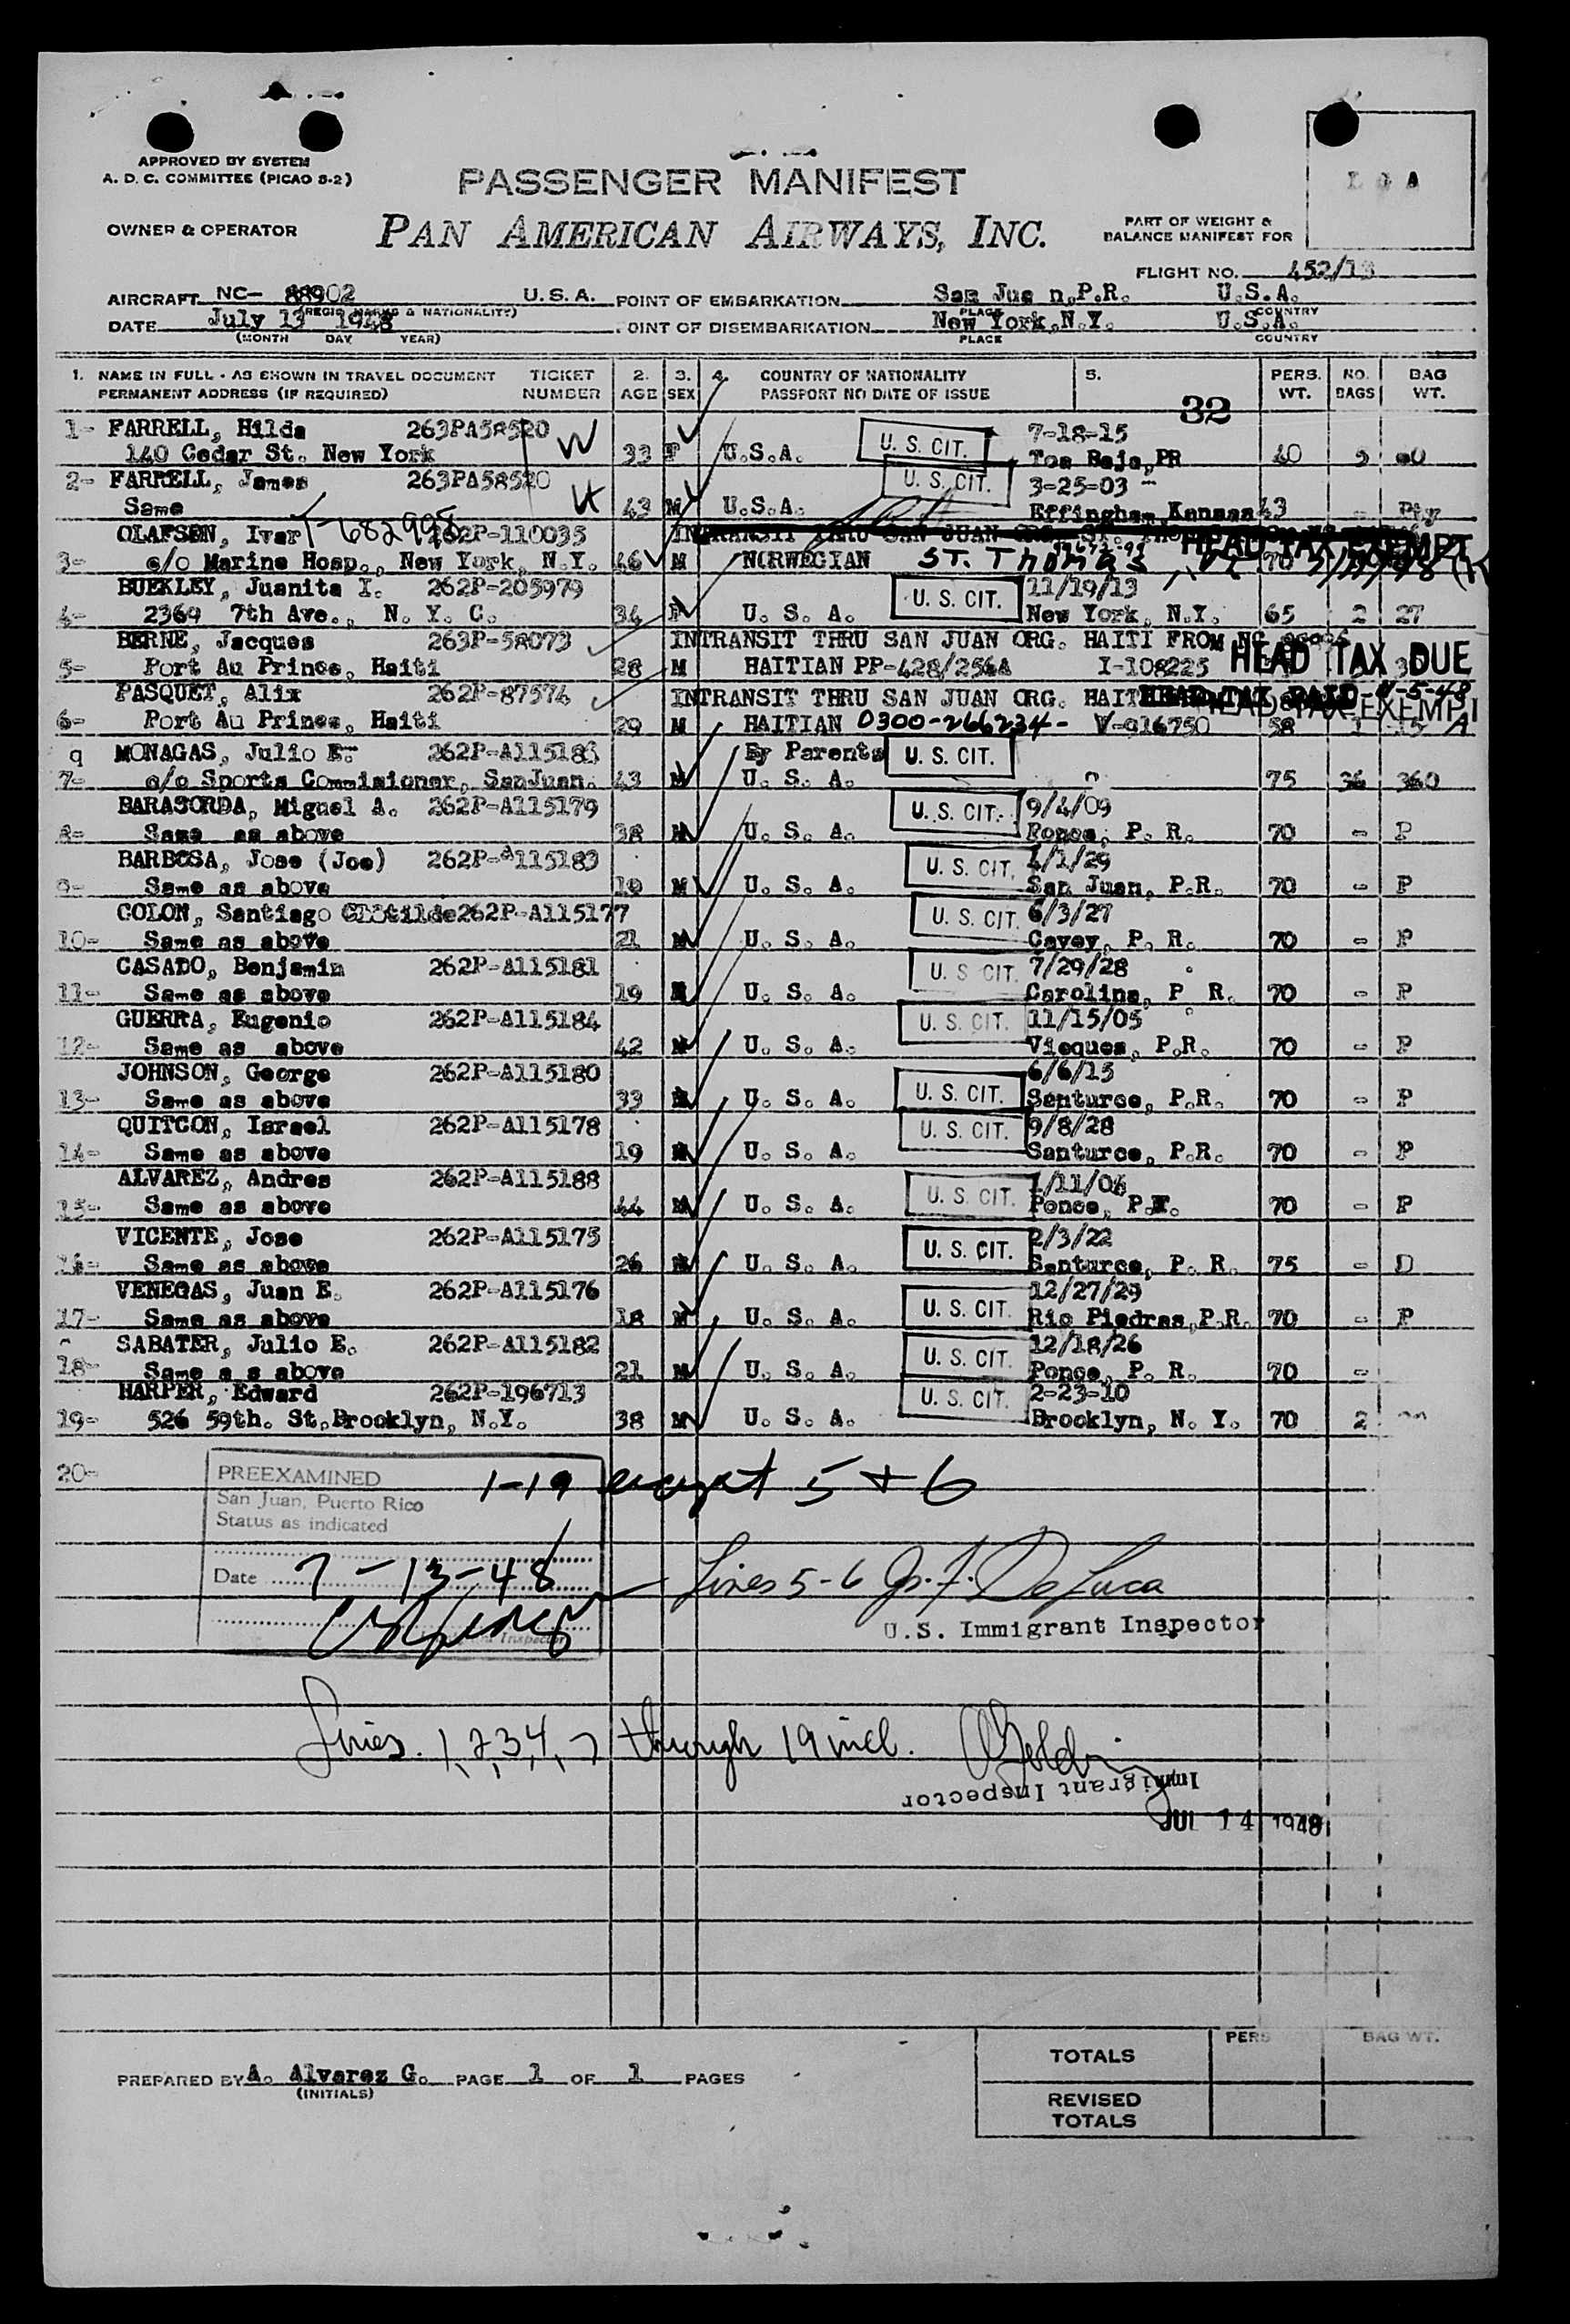 APPROVED BY SYSTEM
A. D. C. COMMITTEE (PICAO S-2)
PASSENGER MANIFEST
OWNER & OPERATOR
PAN AMERICAN AIRWAYS, INC.
PART OF WEIGHT &
BALANCE MANIFEST FOR
FLIGHT NO. 452/13
AIRCRAFT NC- 88902 U.S.A. POINT OF EMBARKATION San Jua n.P.R. U.S.A.
(REGIS. MARKS & NATIONALITY) PLACE COUNTRY
DATE July 13 1948 POINT OF DISEMBARKATION New York,N.Y. U.S.A.
(MONTH DAY YEAR) PLACE COUNTRY
1. NAME IN FULL - AS SHOWN IN TRAVEL DOCUMENT TICKET 2. 3. 4. COUNTRY OF NATIONALITY 5. PERS. NO. BAG
PERMANENT ADDRESS (IF REQUIRED) NUMBER AGE SEX PASSPORT NO DATE OF ISSUE WT. BAGS WT.
32
1- FARRELL, Hilda 263PA58520 U. S. CIT. 7-18-15
140 Cedar St. New York 33 F U.S.A. Toa Baja,PR 40
2- FARRELL, James 263PA58520 U. S. CIT. 3-25-03
Same 43 M U.S.A. Effingham,Kansas 43
OLAFSEN, Ivar T-682995 262P-110035 INTRANSIT THRU SAN JUAN ORG. ST. HEAD TAX EXEMPT
3- c/o Marine Hosp., New York, N.Y. 46 M NORWEGIAN ST. THOMAS, 70
BUEKLEY, Juanita I. 262P-205979 U. S. CIT. 11/19/13
4- 2369 7th Ave., N. Y. C. 34 F U. S. A. New York, N.Y. 65 2 27
BERNE, Jacques 263P-58073 INTRANSIT THRU SAN JUAN ORG. HAITI FROM NC HEAD TAX DUE
5- Port Au Prince, Haiti 28 M HAITIAN PP-428/2564 I-108225
PASQUET, Alix 262P-87574 INTRANSIT THRU SAN JUAN ORG. HAITI HEAD TAX EXEMPT
6- Port Au Prince, Haiti 29 M HAITIAN 0300-266234- V-916750 58
MONAGAS, Julio E. By Parents U. S. CIT.
7- c/o Sports Commisioner, SanJuan. 43 M U. S. A. 75 36 360
BARASORDA, Miguel A. 262P-A115179 U. S. CIT. 9/4/09
8- Same as above 38 M U. S. A. Ponce, P. R. 70 - P
BARBOSA, Jose (Joe) 262P-A115183 U. S. CIT. 4/1/29
9- Same as above 19 M U. S. A. San Juan, P.R. 70 - P
COLON, Santiago Clotilde262P-A115177 U. S. CIT. 6/3/27
10- Same as above 21 M U. S. A. Cayey, P. R. 70 - P
CASADO, Benjamin 262P-A115181 U. S CIT. 7/29/28
11- Same as above 19 M U. S. A. Carolina, P R. 70 - P
GUERRA, Eugenio 262P-A115184 U. S. CIT. 11/15/05
12- Same as above 42 M U. S. A. Vieques, P.R. 70 - P
JOHNSON, George 262P-A115180 U. S. CIT. 6/6/15
13- Same as above 33 M U. S. A. Santurce, P.R. 70 - P
QUITCON, Israel 262P-A115178 U. S. CIT. 9/8/28
14- Same as above 19 M U. S. A. Santurce, P.R. 70 - P
ALVAREZ, Andres 262P-A115188 U. S. CIT. 1/11/04
15- Same as above 44 M U. S. A. Ponce, P.R. 70 - P
VICENTE, Jose 262P-A115175 U. S. CIT. 2/3/22
16- Same as above 26 M U. S. A. Santurce, P. R. 75 - D
VENEGAS, Juan E. 262P-A115176 U. S. CIT. 12/27/29
17- Same as above 18 M U. S. A. Rio Piedras,P.R. 70 - P
SABATER, Julio E. 262P-A115182 U. S. CIT. 12/18/26
18- Same a s above 21 M U. S. A. Ponce, P. R. 70 -
HARPER, Edward 262P-196713 U. S. CIT. 2-23-10
19- 526 59th. St,Brooklyn, N.Y. 38 M U. S. A. Brooklyn, N. Y. 70 2
20- PREEXAMINED 1-19 except 5 + 6
San Juan, Puerto Rico
Status as indicated
Date 7-13-48 Lines 5-6 Jr. F. DeLuca
Inspector U.S. Immigrant Inspector
Lines. 1,2,3,4,7 through 19 incl.
Immigrant Inspector
JUL 14 1948
PREPARED BY A. Alvarez G. PAGE 1 OF 1 PAGES
(INITIALS)
TOTALS PERS BAG WT.
REVISED
TOTALS